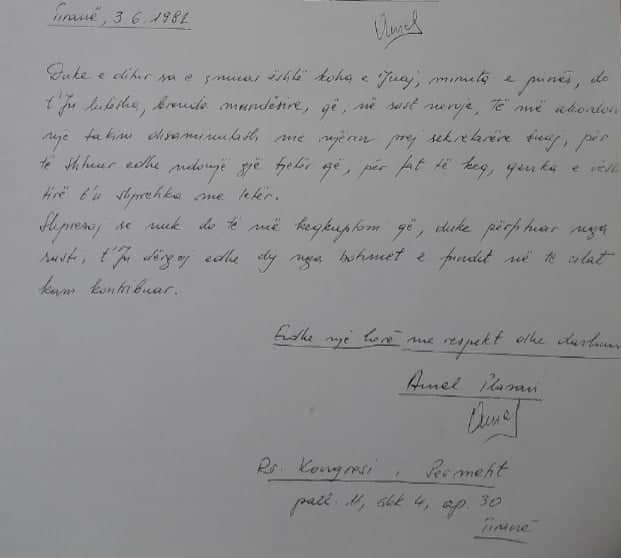 Tiranë, 3.6.1981
Duke e ditur sa e çmuar është koha e Juaj, minuta e punës, do
t'Ju lutesha, brenda mundësive, që, në rast nevoje, të më akordoni
një takim disaminutësh me njërin prej sekretarëve tuaj, për
të shtuar edhe ndonjë gjë tjetër që, për fat të keq, qenka e vësh
tirë t'u shprehka me letër.
Shpresoj se nuk do të më keqkuptoni që, duke përfituar nga
rasti, t'Ju dërgoj edhe dy nga botimet e fundit në të cilat
kam kontribuar.
Edhe një herë me respekt dhe dashuri
Amel
Rr. Kongresi i Përmetit
pall. 11, shk. 4, ap. 30
Tiranë